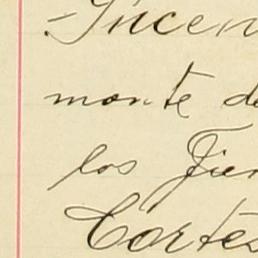 -Incen
monte de
los Fier
Cortés